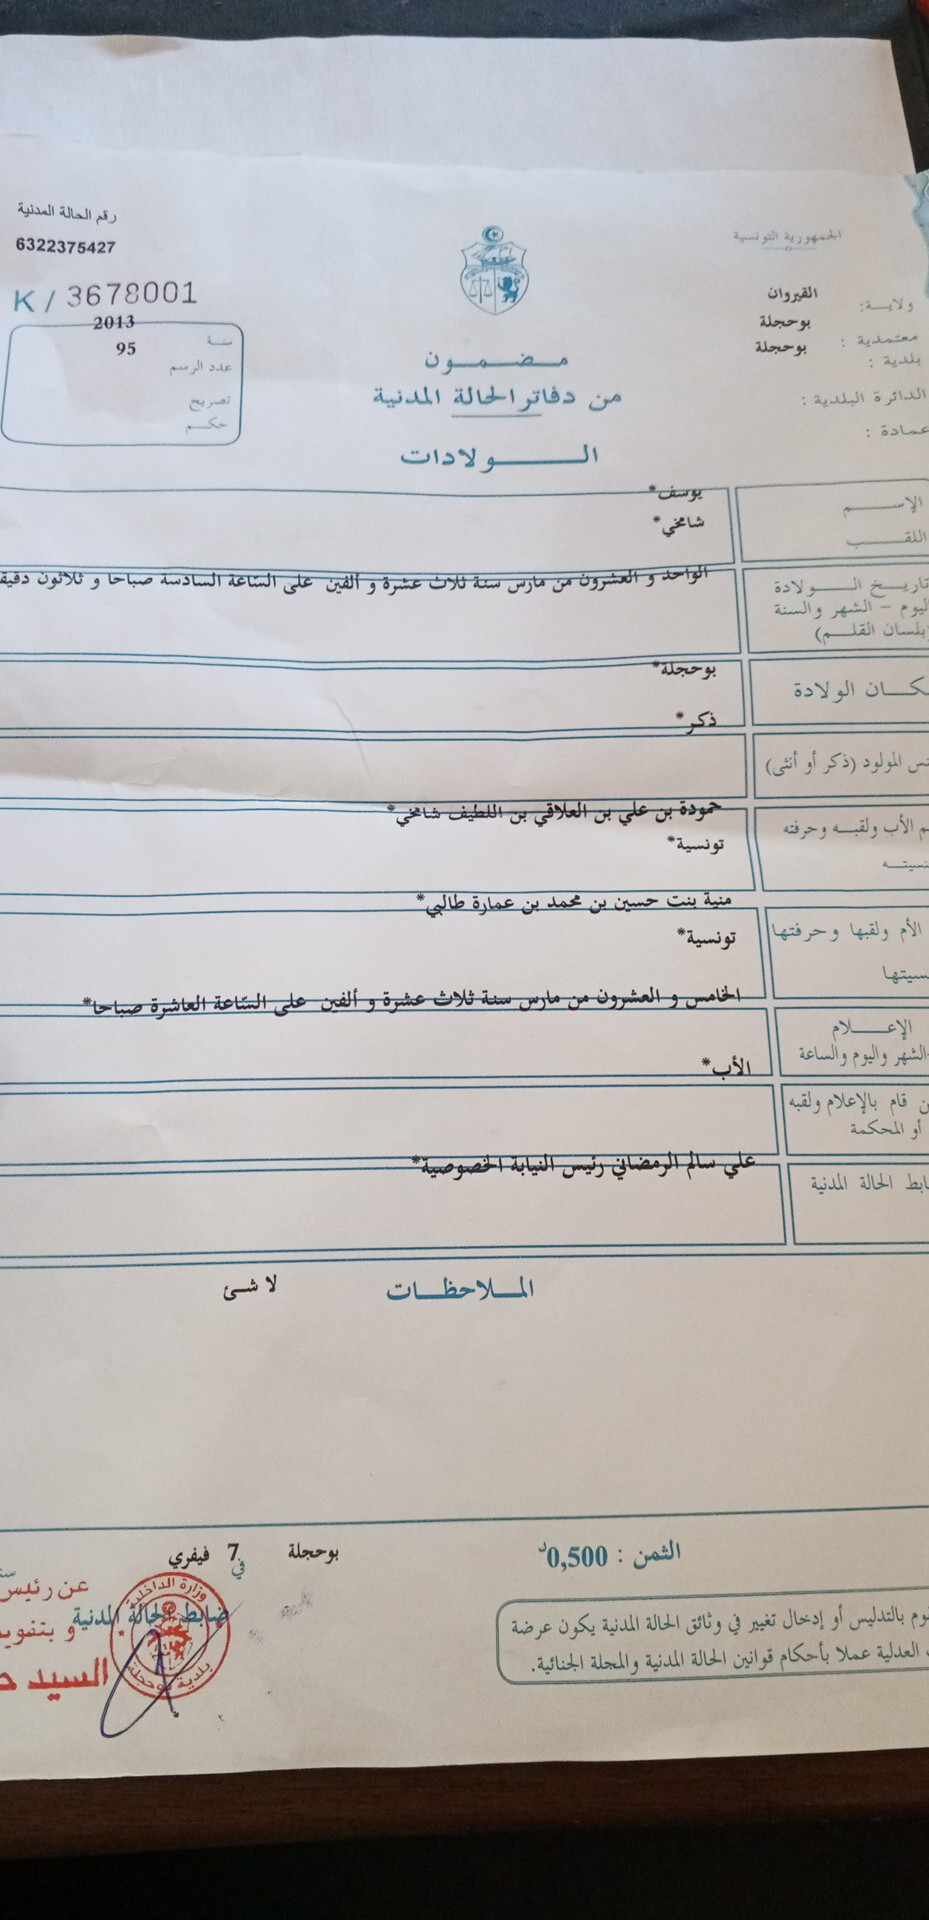 الجمهورية التونسية
رقم الحالة المدنية
6322375427
K / 3678001
سنة 2013
عدد الرسم 95
تصريح
حكم
ولاية: القيروان
معتمدية : بوحجلة
بلدية : بوحجلة
الدائرة البلدية :
عمادة :
مضمون
من دفاتر الحالة المدنية
الولادات
الإسم يوسف*
اللقب شامخي*
تاريخ الولادة الواحد و العشرون من مارس سنة ثلاث عشرة و ألفين على السّاعة السادسة صباحا و ثلاثون دقيقة
اليوم - الشهر والسنة
(بلسان القلم)
مكان الولادة بوحجلة*
ذكر*
جنس المولود (ذكر أو أنثى)
حمودة بن علي بن العلاقي بن اللطيف شامخي*
الأب ولقبه وحرفته
تونسية*
منية بنت حسين بن محمد بن عمارة طالبي*
الأم ولقبها وحرفتها
تونسية*
الخامس و العشرون من مارس سنة ثلاث عشرة و ألفين على السّاعة العاشرة صباحا*
الإعلام
الشهر واليوم والساعة
الأب*
قام بالإعلام ولقبه
أو المحكمة
علي سالم الرمضاني رئيس النيابة الخصوصية*
ضابط الحالة المدنية
الملاحظات
لا شئ
الثمن : 0,500د
بوحجلة في 7 فيفري
ضابط الحالة المدنية
عن رئيس
و بتفويض
السيد
وزارة الداخلية
بلدية بوحجلة
بالتدليس أو إدخال تغيير في وثائق الحالة المدنية يكون عرضة
العدلية عملا بأحكام قوانين الحالة المدنية والمجلة الجنائية.